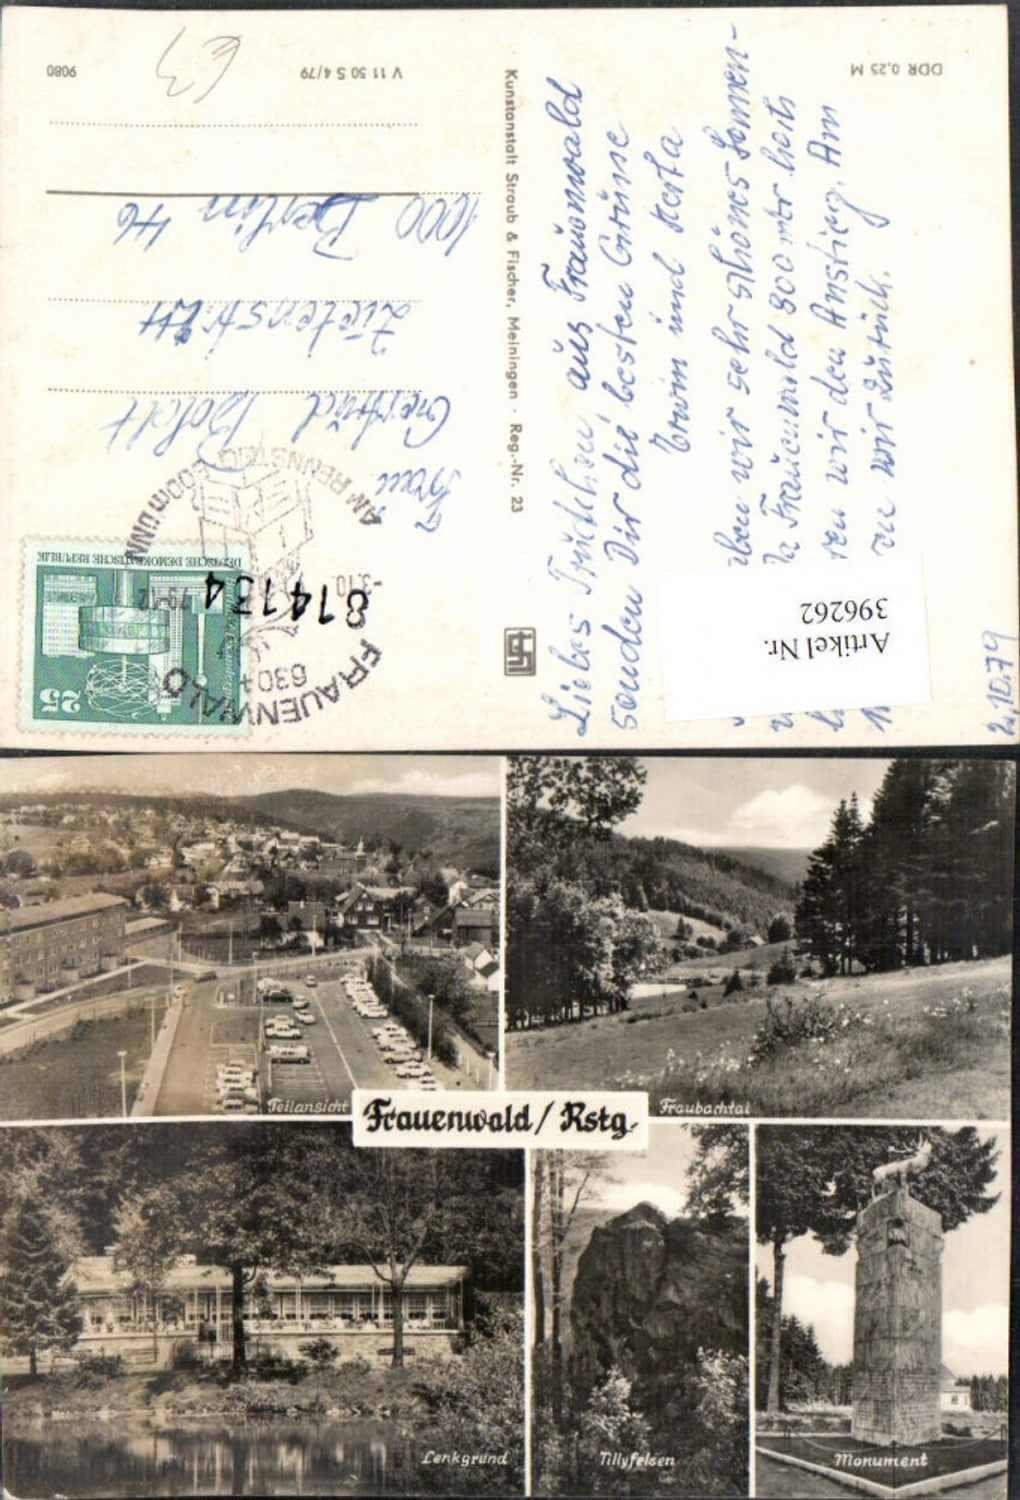 Liebes Trudchen, aus Frauenwald
senden Dir die besten Grüsse
Erwin und Herta
ben wir sehr schönes Sonnen-
Da Frauenwald 800 mtr hoch
ren wir den Anstieg. Am
wir zurück.
2.10.79
DDR 0,25 M
Kunstanstalt Straub & Fischer, Meiningen · Reg.-Nr. 23
V 11 50 S 4/79
9080
Frau
Gertrud Boldt
Zietenstr.
1000 Berlin 46
Artikel Nr.
396262
814134
DEUTSCHE DEMOKRATISCHE REPUBLIK
25
FRAUENWALD
6304
-3.10.79-12
AM RENNSTEIG 800m ü NN
Teilansicht
Fraubachtal
Frauenwald / Rstg.
Lenkgrund
Tillyfelsen
Monument